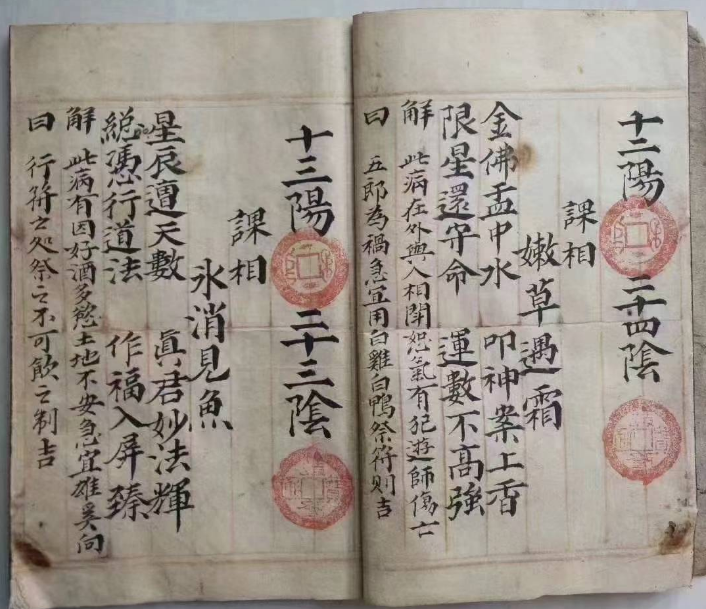 十二陽 二十四陰
課相
嫩草遇霜
金佛盂中水 叩神案上香
限星還守命 運數不高強
解 此病在外與人相鬧怨氣有犯遊師傷亡
曰 五郎為禍急宜用白雞白鴨祭符則吉
十三陽 三十三陰
課相
氷消見魚
星辰遭天數 真君妙法輝
総憑行道法 作福入屏臻
解 此病有因好酒多慾土地不安急宜雄奚向
曰 行符之処祭之不可飲之制吉